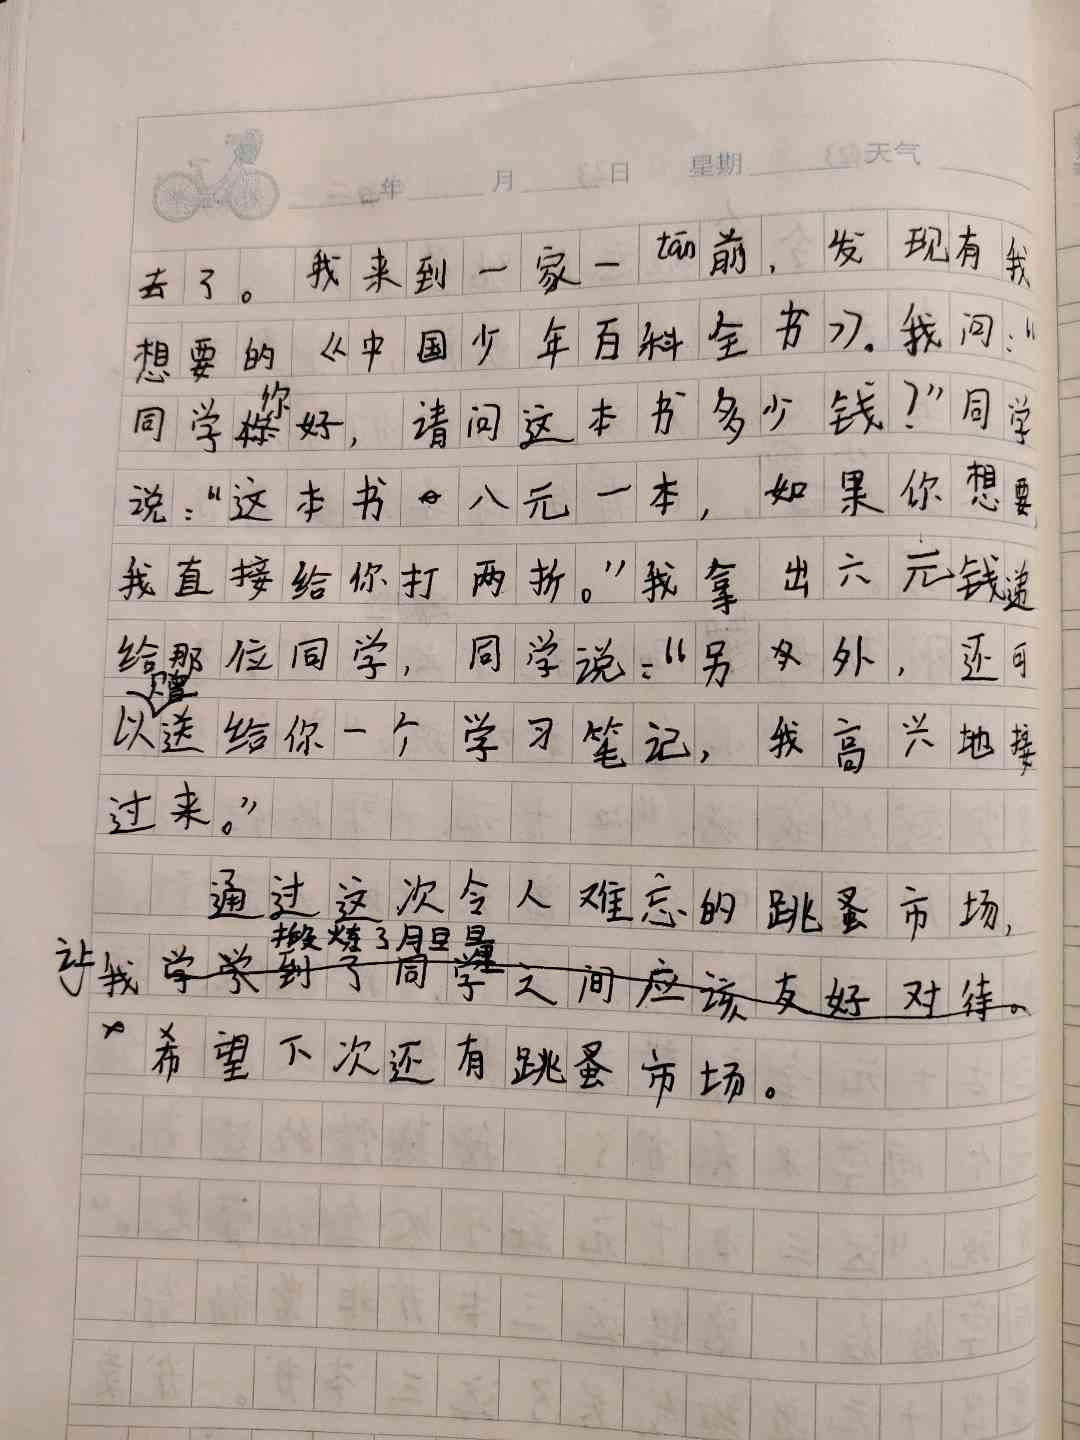 年 月 日 星期 天气
去了。我来到一家一tān前，发现有我
想要的《中国少年百科全书》。我问：“
同学你好，请问这本书多少钱？”同学
说：“这本书八元一本，如果你想要
我直接给你打两折。”我拿出六元钱递
给那位同学，同学说：“另外，还可
以赠送给你一个学习笔记，我高兴地接
过来。”
通过这次令人难忘的跳蚤市场，
锻炼了胆量
让我学学到了同学之间应该友好对待。
希望下次还有跳蚤市场。